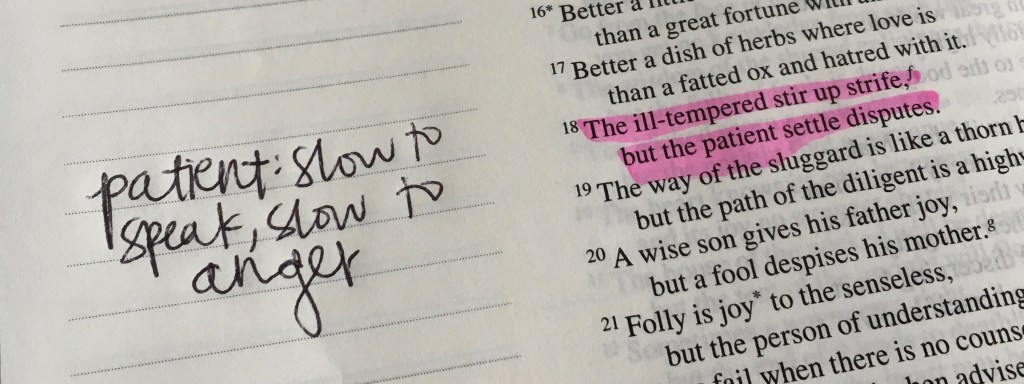 patient: slow to
speak, slow to
anger
16* Better a
than a great fortune with
17 Better a dish of herbs where love is
than a fatted ox and hatred with it.
18 The ill-tempered stir up strife,f
but the patient settle disputes.
19 The way of the sluggard is like a thorn
but the path of the diligent is a
20 A wise son gives his father joy,
but a fool despises his mother.g
21 Folly is joy* to the senseless,
but the person of understanding
fail when there is no